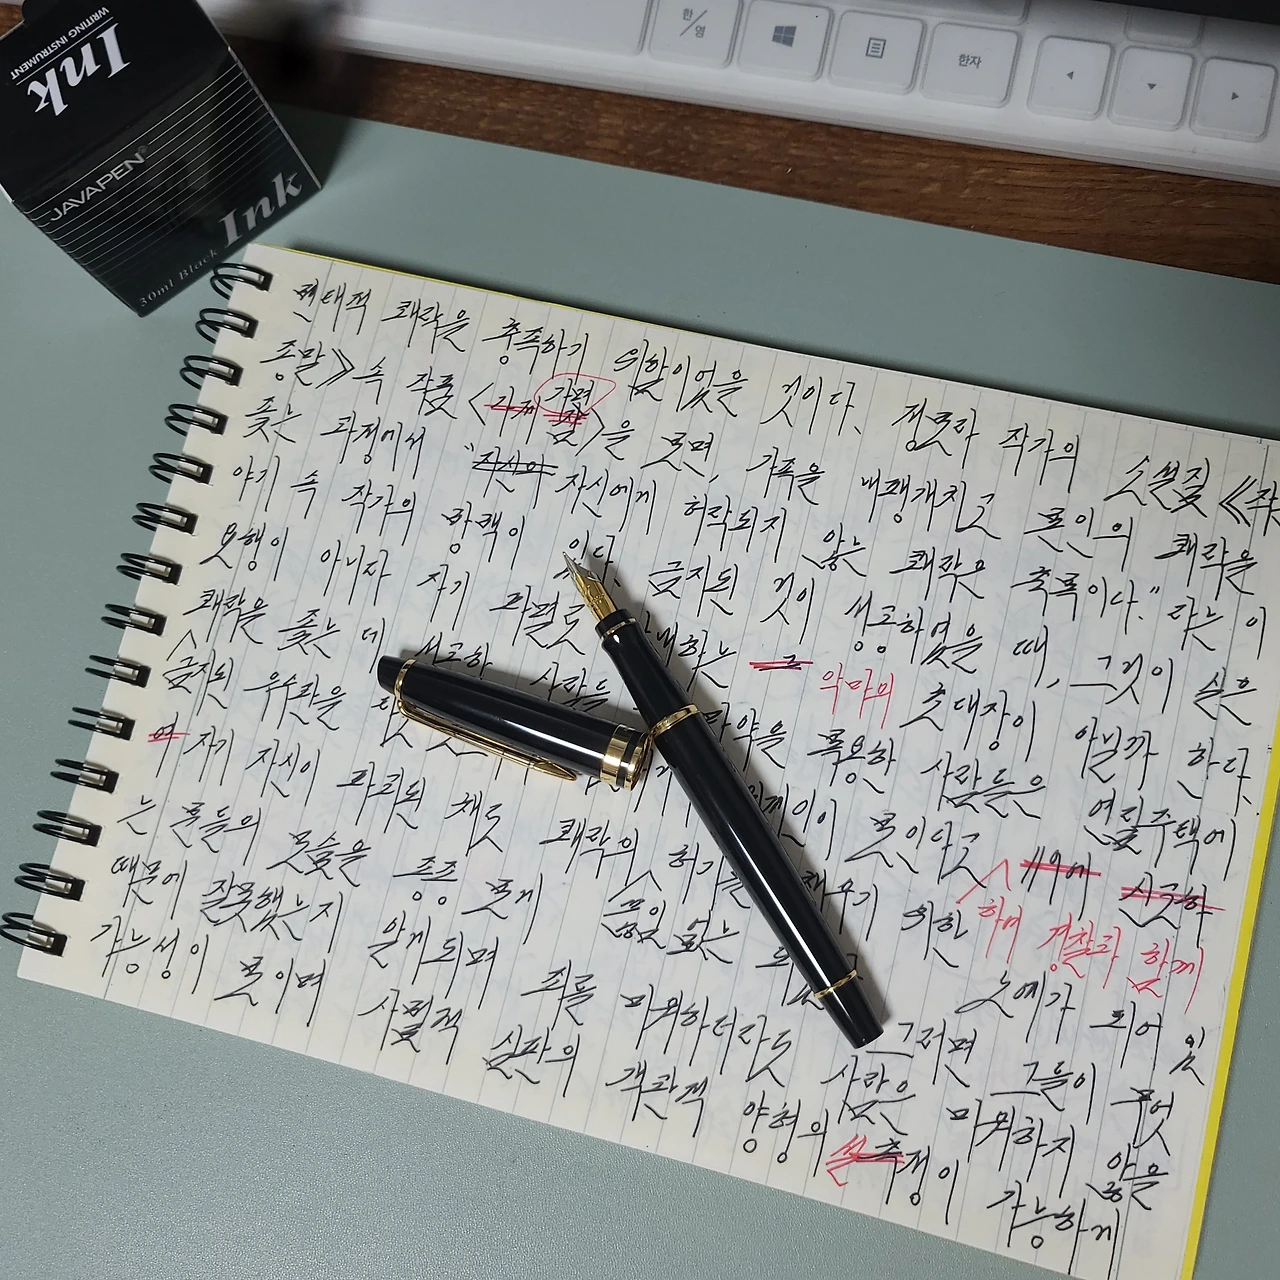 Ink
WRITING INSTRUMENT
JAVAPEN
30ml Black Ink
한/영
한자
변태적 쾌락을 충족하기 위함이었을 것이다. 정보라 작가의 소설집 《죽
종말》 속 작품 <가면>을 보면, 가족을 내팽개치고 본인의 쾌락을
좇는 과정에서 "자신에게 허락되지 않는 쾌락은 축복이다." 라는 이
야기 속 작가의 방백이 있다. 금지된 것이 성공하였을 때, 그것이 실은
모행이 아니라 자기 파멸로 하는 악마의 초대장이 아닐까 한다.
쾌락을 좇는 데 사람들 마약을 복용한 사람들은 연립주택에
금지된 우수관을 보인다고 119에 신고하
여 자기 자신이 파괴된 채로 쾌락의 허기를 채우기 위한 하며 경찰과 함께
는 분들의 모습을 종종 보게 끊임 없는 노예가 되어 있
때문에 잘못했는지 알게되며 죄를 미워하더라도 그러면 그들이 무엇
가능성이 보이며 사법적 심판의 객관적 양형의 사람은 미워하지 않을
측정이 가능하게